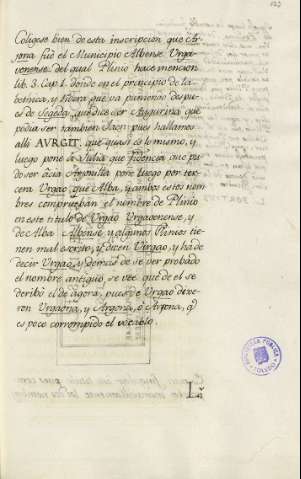 123
Coligese bien de esta inscripcion que Ar-
jona fué el Municipio Albense Urga-
vonense, del qual Plinio hace mencion
lib. 3. Cap. 1. donde en el principio de la
betonica, y ribera que va puniendo despu-
es de Segeda, que dice ser Augurina que
podia ser tambien Jaen pues hallamos
alli AVRGIT. que quasi es lo mismo, y
luego pone a Julia que Fidencia que pu-
do ser ácia Arjonilla pone luego por ter-
cera Urgao que Alba, y ambos estos nom-
bres comprueban el nombre de Plinio
en este titulo de Urgao Urgavonense, y
de Alba Albense, y algunos Plinios tie-
nen mal escrito, y dicen Vergao, y ha de
decir Urgao, y demas de se ver probado
el nombre antiguo se vee que de el se
deribó el de agora, pues de Urgao dixe-
ron Urgaona, y Argona, ó Arjona, q̃
es poco corrompido el vocablo.
La
BIBLIOTECA PUBLICA
TOLEDO